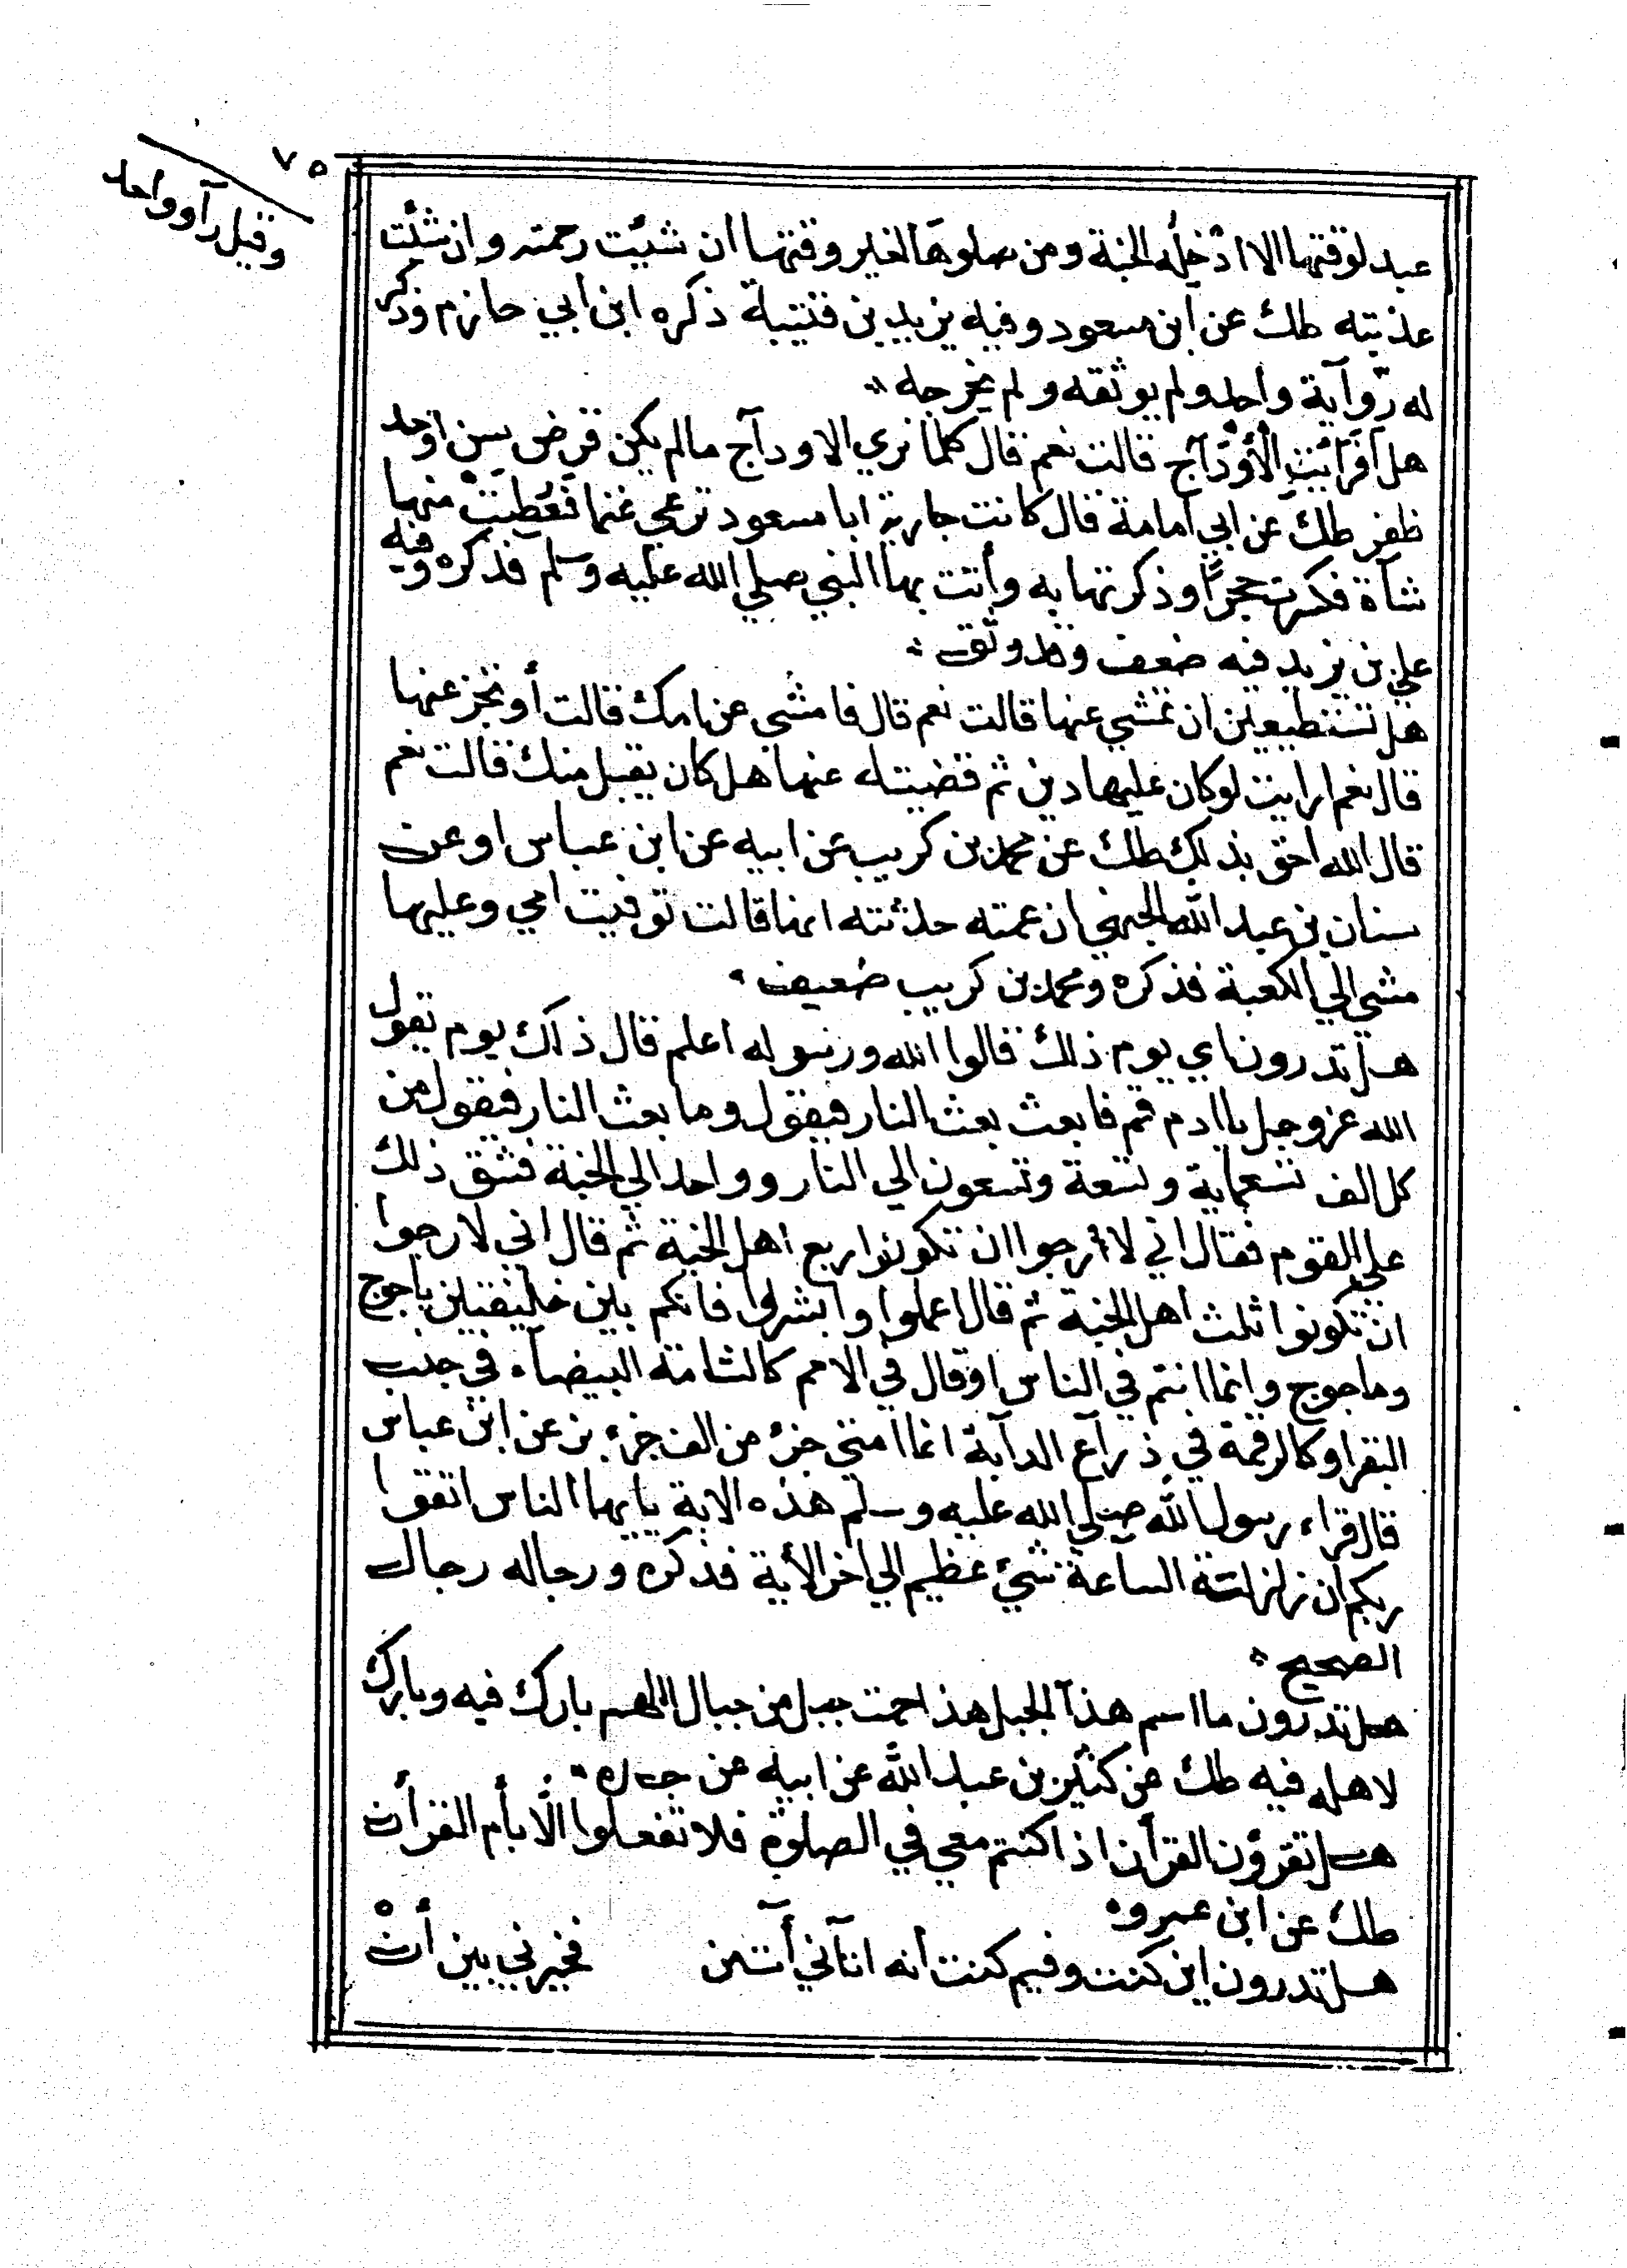 ٧٥
وقيل رآو واحد
عبد لوقتها الا ادخله الجنة ومن صلوها لغير وقتها ان شئت رحمته وان شئت
عذبته طك عن ابن مسعود وفيه يزيد بن قتيبة ذكره ابن ابي حازم وذكر
له روآية واحد ولم يوثقه ولم يخرجه
هل افرائيت الأودآج قالت نعم قال كلما نري الاودآج مالم يكن قرض بسن اوحد
ظفر طك عن ابي امامة قال كانت جارية ابا مسعود ترعي غنما فعطبت منها
شآة فكسرت حجرًا وذكرتها به وأتت بها النبي صلي الله عليه وسلم فذكره وفيه
علي بن يزيد فيه ضعف وقد وثق
هل تستطيعين ان تمشي عنها قالت نعم قال فامشي عن امك قالت أو نجز عنها
قال نعم ارايت لو كان عليها دين ثم قضيته عنها هل كان يقبل منك قالت نعم
قال الله احق بذلك طك عن محمد بن كريب عن ابيه عن ابن عباس او عن
سنان بن عبد الله الجهني ان عمته حدثته انها قالت توفيت امي وعليها
مشي الي الكعبة فذكره ومحمد بن كريب ضعيف
هل تدرون اي يوم ذلك قالوا الله ورسوله اعلم قال ذلك يوم يقول
الله عز وجل يا ادم قم فابعث بعث النار فيقول وما بعث النار فيقول من
كل الف تسعماية وتسعة وتسعون الي النار وواحد الي الجنة فشق ذلك
علي القوم فقال اني لا ارجوا ان تكونوا ربع اهل الجنة ثم قال اني لارجوا
ان تكونوا ثلث اهل الجنة ثم قال اعملوا وابشروا فانكم بين خليفتين ياجوج
وماجوج وانما انتم في الناس او قال في الامم كالشامة البيضآء في جنب
البقر او كالرقمة في ذرآع الدآبة انما امتي جزء من الف جزء بز عن ابن عباس
قال قراء رسول الله صلي الله عليه وسلم هذه الاية يايها الناس اتقوا
ربكم ان زلزلة الساعة شيئ عظيم الي اخر الأية فذكره ورجاله رجال
الصحيح
هل تدرون ما اسم هذا الجبل هذا حمت جبل من جبال اللهم بارك فيه وبارك
لاهله فيه طك عن كثير بن عبد الله عن ابيه عن جده
هل تقرؤن القرأن اذا كنتم معي في الصلوة فلا تفعلوا الّا بأم القرأن
طك عن ابن عمرو
هل تدرون اين كنت وفيم كنت أنه اتآني أت من فخيرني بين أن